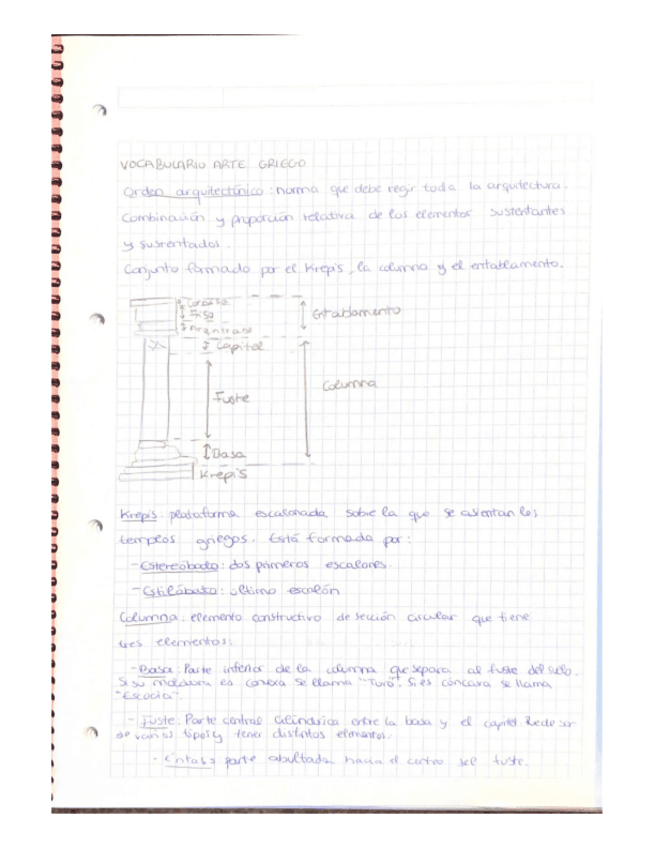 VOCABULARIO ARTE GRIEGO
Orden arquitectónico: norma que debe regir toda la arquitectura.
Combinación y proporción relativa de los elementos sustentantes
y sustentados.
Conjunto formado por el Krepis, la columna y el entablamento.
Cornisa
Friso
Arquitrabe
Entablamento
Capitel
Columna
Fuste
Basa
Krepis
Krepis: plataforma escalonada sobre la que se asientan los
templos griegos. Está formada por:
- Estereóbato: dos primeros escalones.
- Estilóbato: último escalón
Columna: elemento constructivo de sección circular que tiene
tres elementos:
- Basa: Parte inferior de la columna que separa al fuste del suelo.
Si su moldura es convexa se llama "Turo". Si es cóncava se llama
"Escocia".
- Fuste: Parte central cilíndrica entre la basa y el capitel. Puede ser
de varios tipos y tener distintos elementos.
· Éntasis parte abultada hacia el centro del fuste.